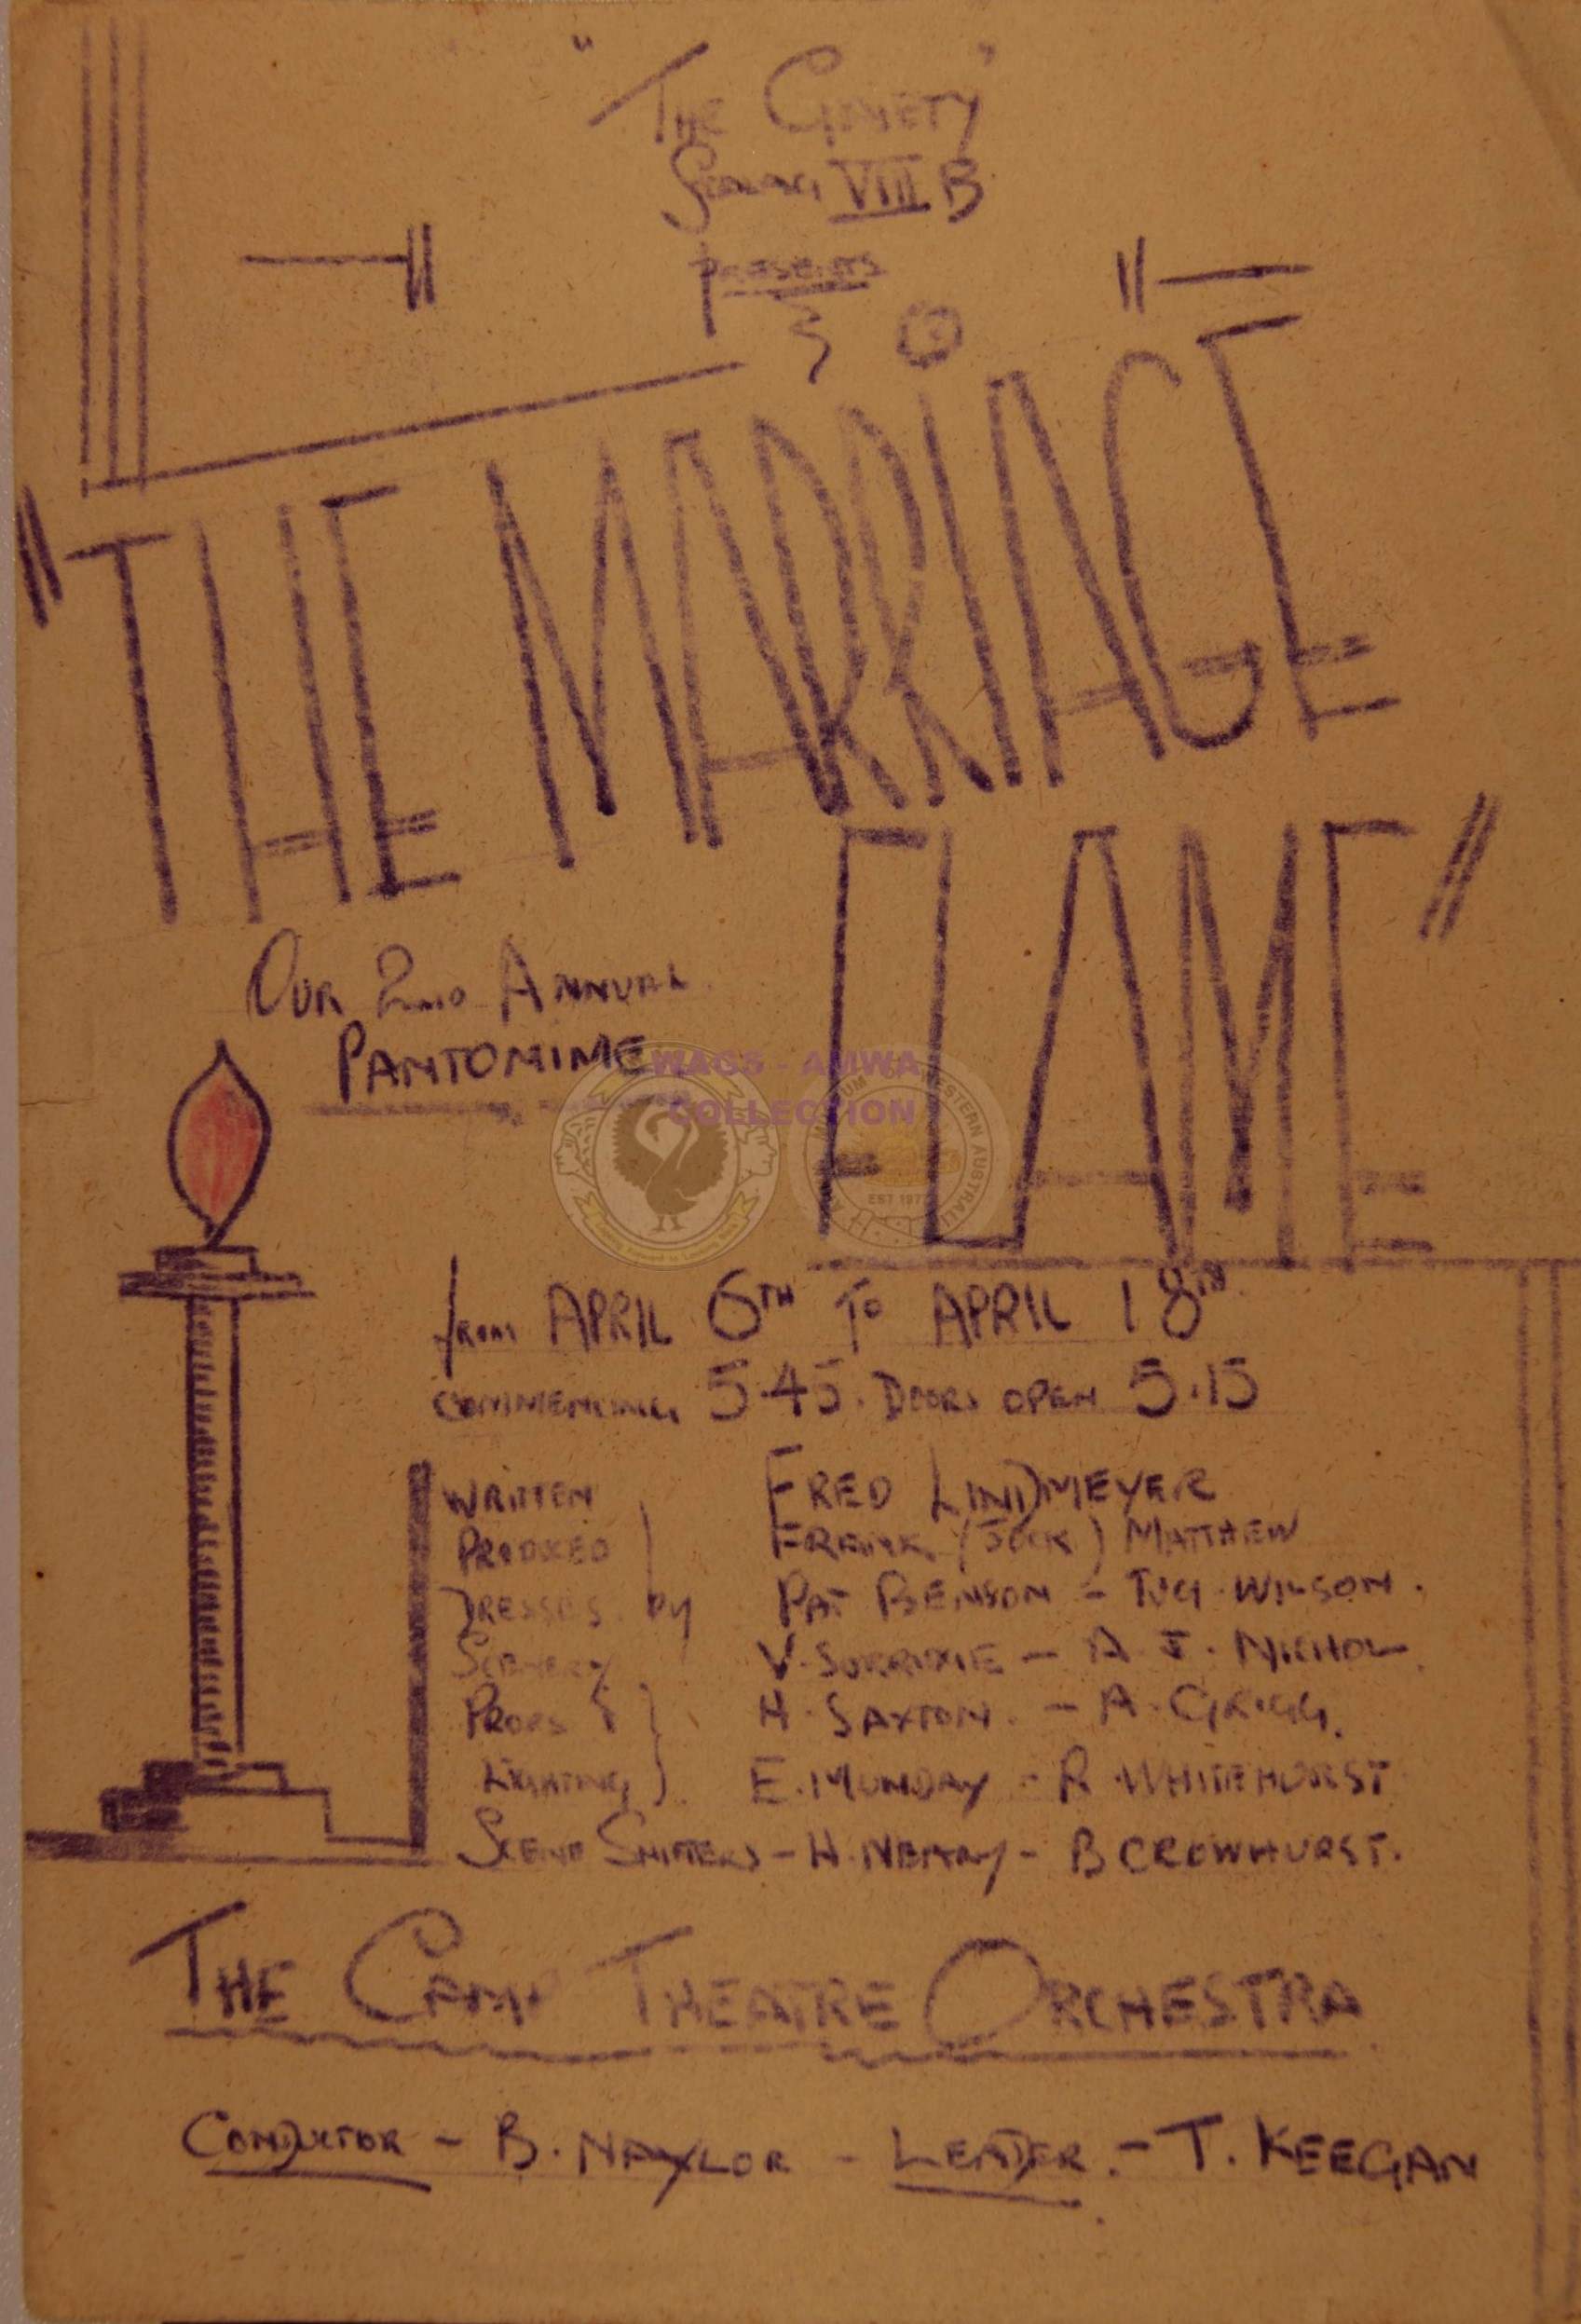 "The Gaiety"
Stalag VIII B
presents
"THE MARRIAGE
FLAME"
OUR 2ND ANNUAL
PANTOMIME
WAGS - AMWA
COLLECTION
WESTERN AUSTRALIA
EST 197
from APRIL 6TH To APRIL 18TH
COMMENCING 5.45. DOORS OPEN 5.15
WRITTEN FRED LINDMEYER
PRODUCED FRANK (JOCK) MATTHEW
DRESSES by PAT BENSON - TUG WILSON.
SCENERY V. - A. J. NICHOL
PROPS & H. SAXTON. - A. GRIGG.
LIGHTING E. MUNDAY - R. WHITEHURST
SCENE SHIFTERS - H. - B CROWHURST.
THE CAMP THEATRE ORCHESTRA
CONDUCTOR - B. NAYLOR - LEADER. - T. KEEGAN